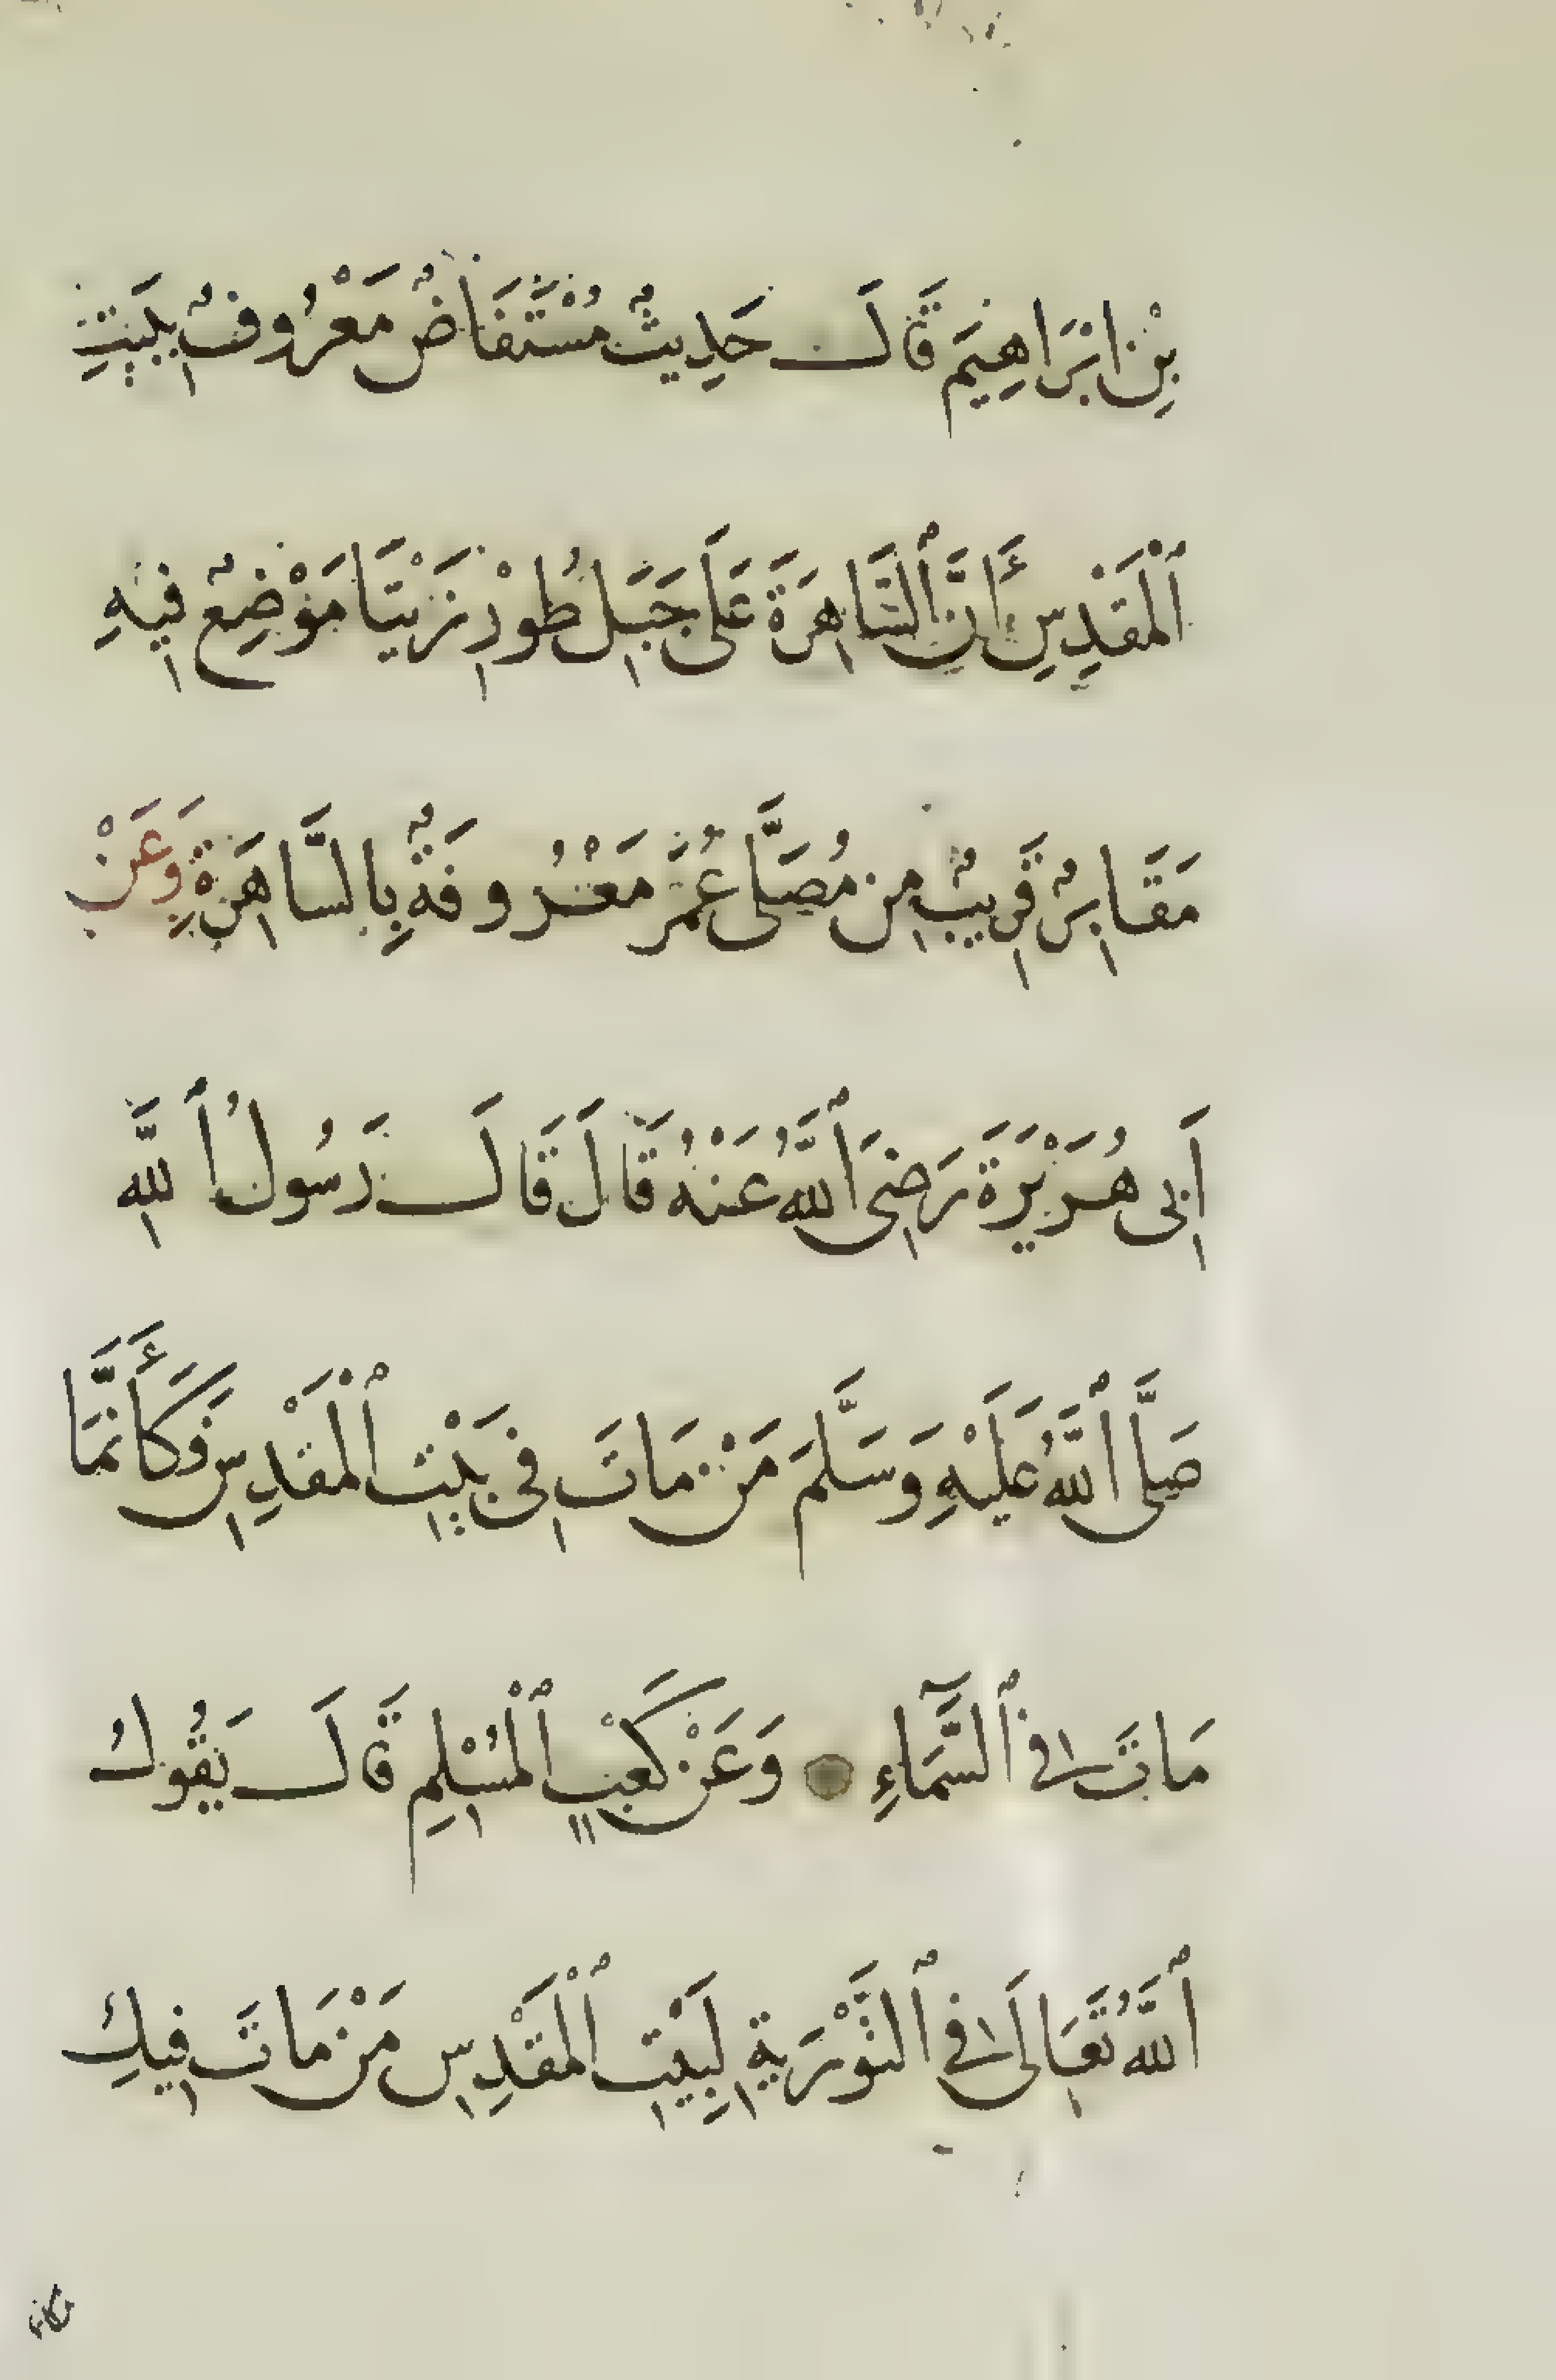 بْنِ ابْرَاهِيَم قَالَ حَدِيثٌ مُسْتَفَاضٌ مَعْرُوفٌ بِبَيْتِ
ٱلْمَقْدِسِ أَنَّ ٱلسَّاهِرَةَ عَلَى جَبَلِ طُورْ زَيْتَا مَوْضِعٌ فِيهِ
مَقَابِرٌ قَرِيبٌ مِن مُصَلَّى عُمَرَ مَعْرُوفَةٌ بِالسَّاهِرَةِ وَعَنْ
اَبِى هُرَيْرَةَ رَضِىَ ٱللَّهُ عَنْهُ قَالَ قَالَ رَسُولُ ٱللَّهِ
صَلَّى ٱللَّهُ عَلَيْهِ وَسَلَّمَ مَنْ مَاتَ فِى بَيْتِ ٱلْمَقْدِسِ فَكَأَنَّمَا
مَاتَ فِى ٱلسَّمَآءِ وَعَنْ كَعْبٍ ٱلْمُسْلِمِ قَالَ يَقُولُ
ٱللَّهُ تَعَالَى فِى ٱلتَّوْرَيةِ لِبَيْتِ ٱلْمَقْدِسِ مَنْ مَاتَ فِيكِ
فكانما